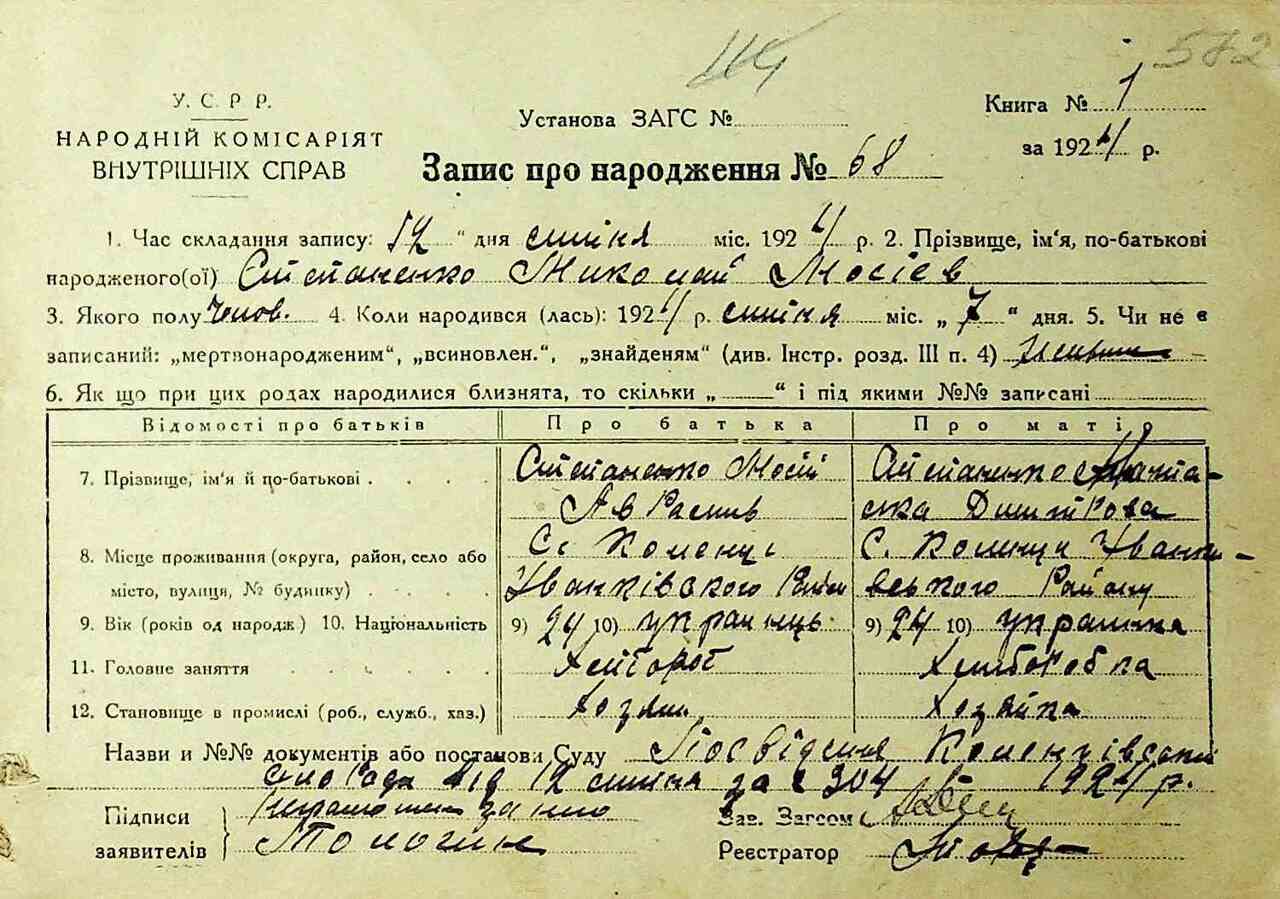 114
572
У. С. Р Р.
НАРОДНІЙ КОМІСАРІЯТ
ВНУТРІШНІХ СПРАВ
Установа ЗАГС №
Книга № 1
за 1924 р.
Запис про народження № 68
1. Час складання запису: 12 " дня січня міс. 1924 р. 2. Прізвище, ім'я, по-батькові
народженого(ої) Степаненко Миколай Мосіев
3. Якого полу чолов. 4. Коли народився (лась): 1924 р. січня міс. „ 7 " дня. 5. Чи не є
записаний: „мертвонародженим", „всиновлен.", „знайденям" (див. Інстр. розд. III п. 4)
6. Як що при цих родах народилися близнята, то скільки „ " і під якими №№ записані
Відомості про батьків Про батька Про матір
7. Прізвище, ім'я й по-батькові . . . . Степаненко Мосій Степаненко
Аврамів Дмитрова
8. Місце проживання (округа, район, село або С. Коленці С. Коленці Іванків-
місто, вулиця, № будинку) . . . . Іванківского Район ського Району
9. Вік (років од народж.) 10. Національність 9) 24 10) українць 9) 24 10) українка
11. Головне заняття . . . . Хлібороб Хліборобка
12. Становище в промислі (роб., служб., хаз.) Хозяин Хозяйка
Назви и №№ документів або постанови Суду Посвідченя Коленцівської
сільради від 12 січня за № 304 1924 р.
Підписи неграмотен за него
заявителів
Зав. Загсом
Реєстратор